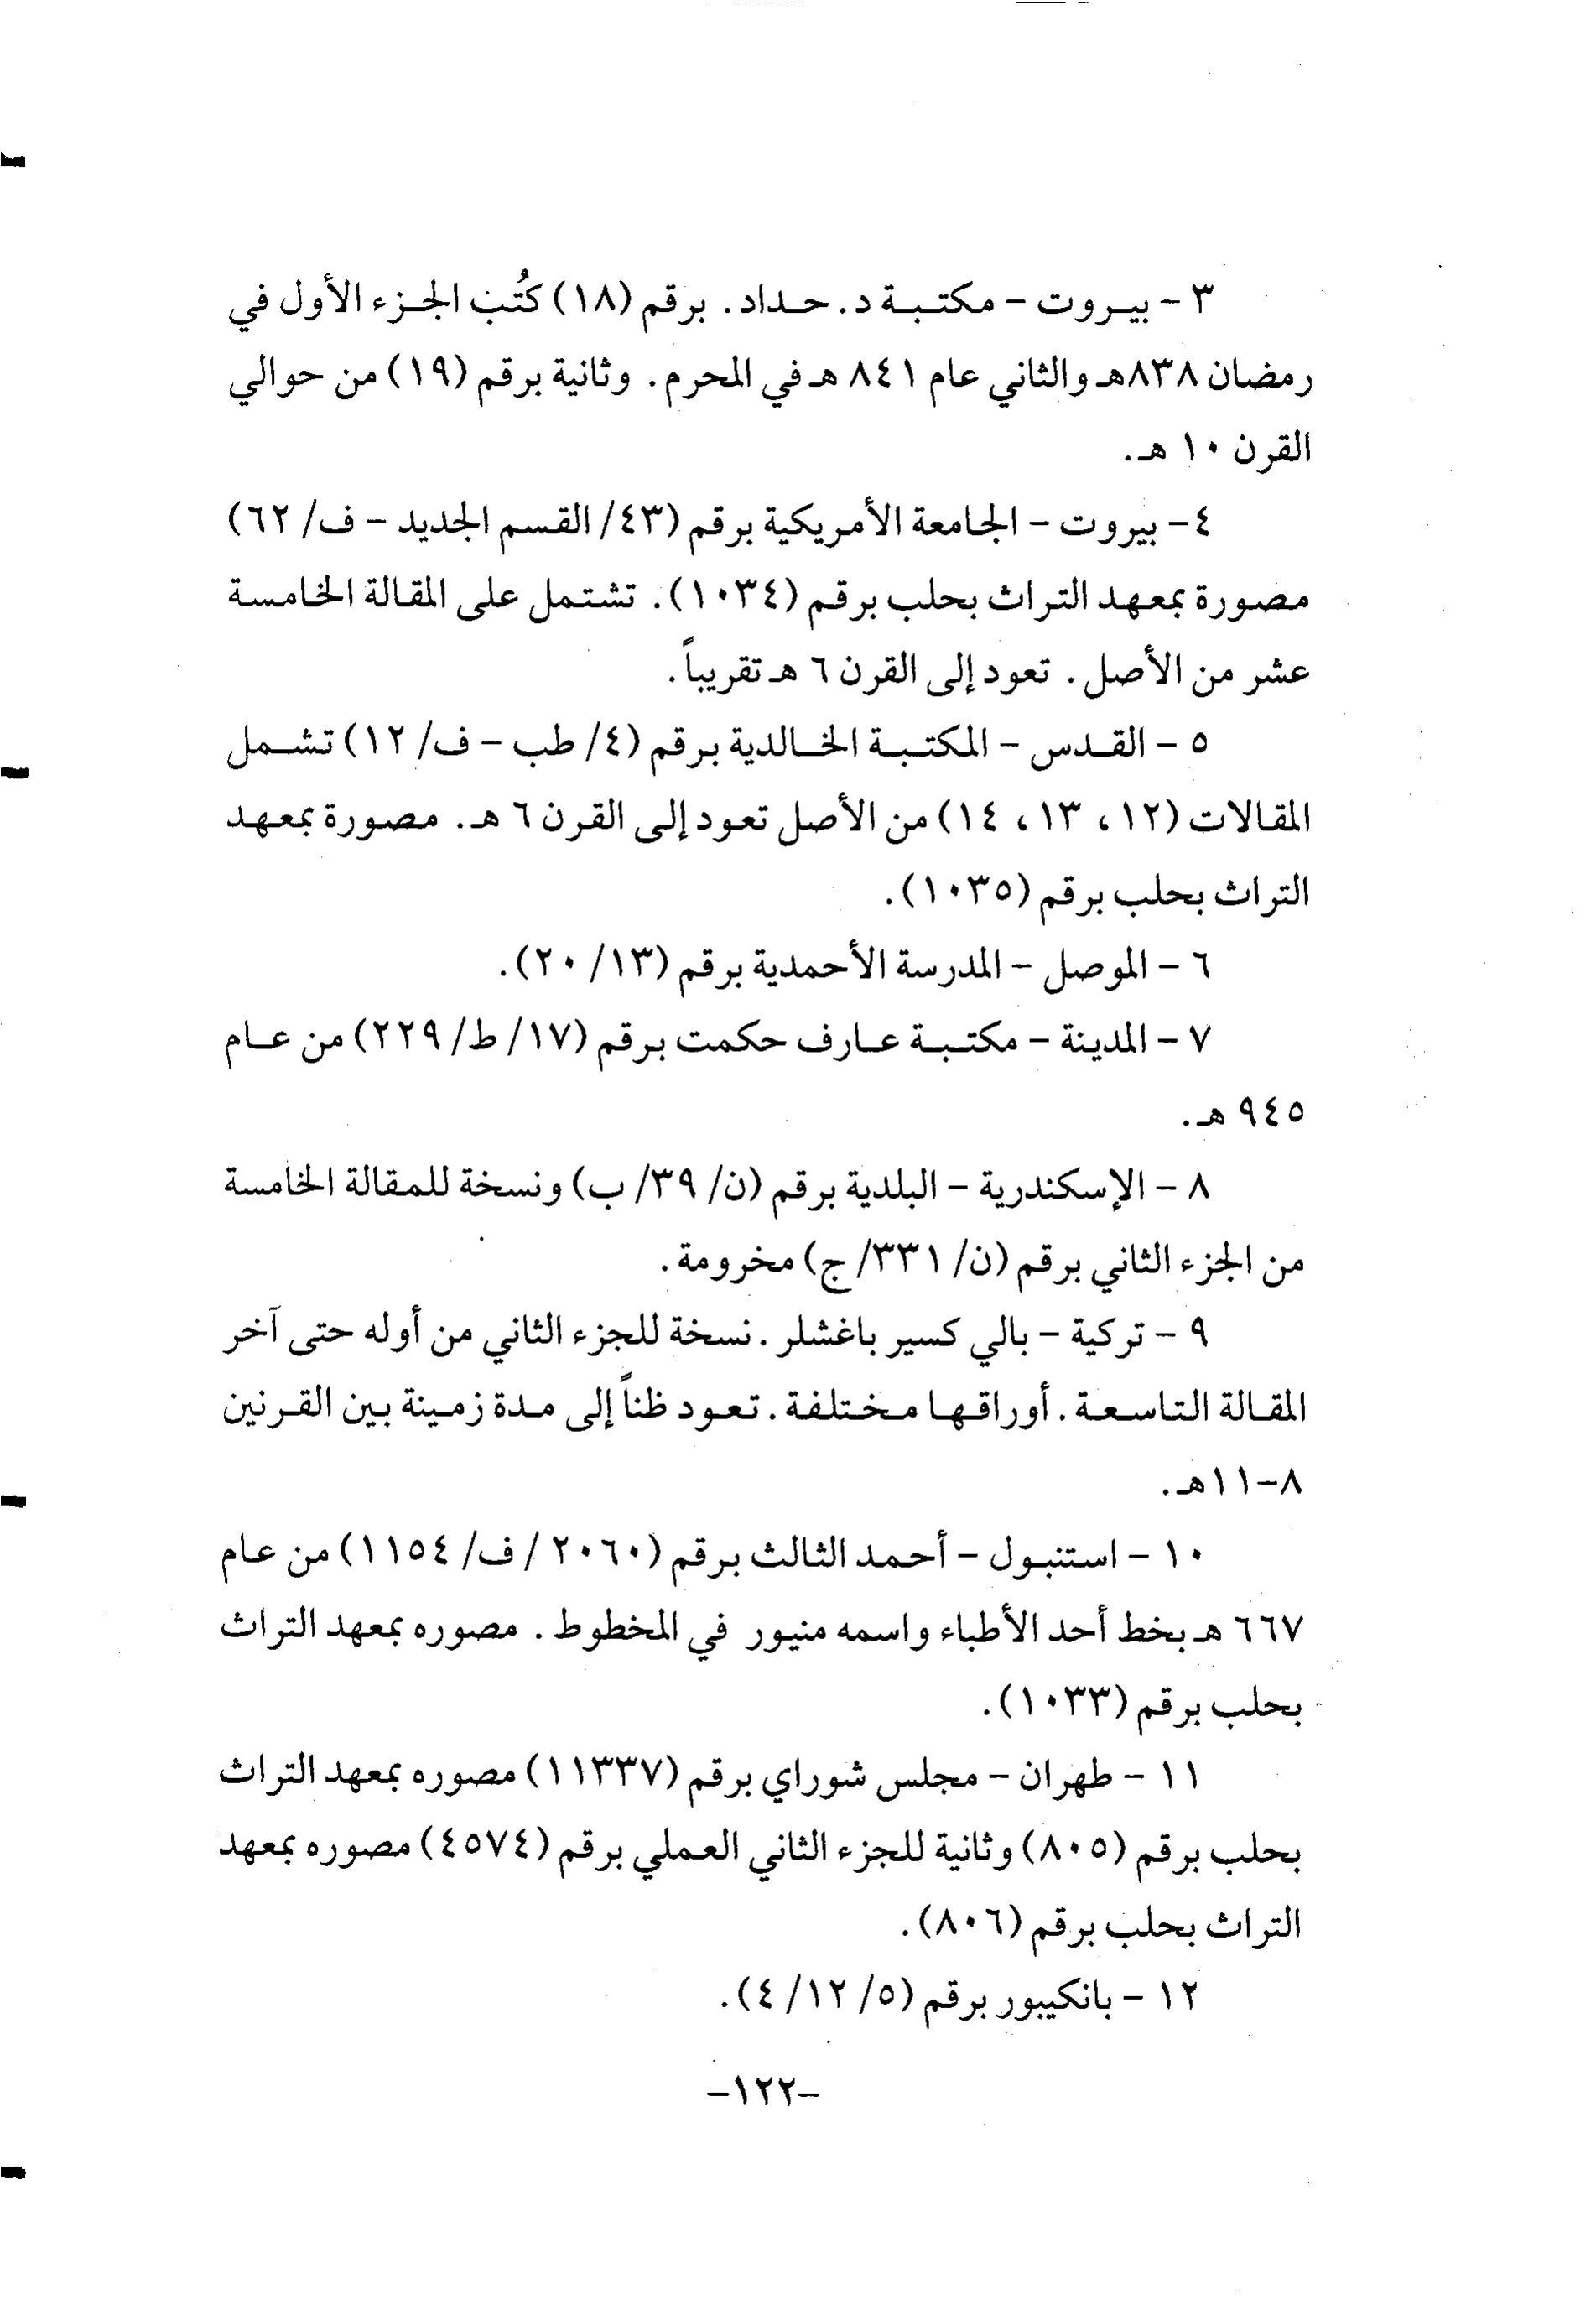 ٣ - بيروت - مكتبة د. حداد. برقم (١٨) كُتب الجزء الأول في
رمضان ٨٣٨هـ والثاني عام ٨٤١ هـ في المحرم. وثانية برقم (١٩) من حوالي
القرن ١٠ هـ.
٤ - بيروت - الجامعة الأمريكية برقم (٤٣/ القسم الجديد - ف/ ٦٢)
مصورة بمعهد التراث بحلب برقم (١٠٣٤). تشتمل على المقالة الخامسة
عشر من الأصل. تعود إلى القرن ٦ هـ تقريباً.
٥ - القدس - المكتبة الخالدية برقم (٤/ طب - ف/ ١٢) تشمل
المقالات (١٢، ١٣، ١٤) من الأصل تعود إلى القرن ٦ هـ. مصورة بمعهد
التراث بحلب برقم (١٠٣٥).
٦ - الموصل - المدرسة الأحمدية برقم (١٣/ ٢٠).
٧ - المدينة - مكتبة عارف حكمت برقم (١٧/ ط/ ٢٢٩) من عام
٩٤٥ هـ.
٨ - الإسكندرية - البلدية برقم (ن/ ٣٩/ ب) ونسخة للمقالة الخامسة
من الجزء الثاني برقم (ن/ ٣٣١/ ج) مخرومة.
٩ - تركية - بالي كسير باغشلر. نسخة للجزء الثاني من أوله حتى آخر
المقالة التاسعة. أوراقها مختلفة. تعود ظناً إلى مدة زمينة بين القرنين
٨-١١هـ.
١٠ - استنبول - أحمد الثالث برقم (٢٠٦٠/ ف/ ١١٥٤) من عام
٦٦٧ هـ بخط أحد الأطباء واسمه منيور في المخطوط. مصوره بمعهد التراث
بحلب برقم (١٠٣٣).
١١ - طهران - مجلس شوراي برقم (١١٣٣٧) مصوره بمعهد التراث
بحلب برقم (٨٠٥) وثانية للجزء الثاني العملي برقم (٤٥٧٤) مصوره بمعهد
التراث بحلب برقم (٨٠٦).
١٢ - بانكيبور برقم (٥/ ١٢/ ٤).
-١٢٢-